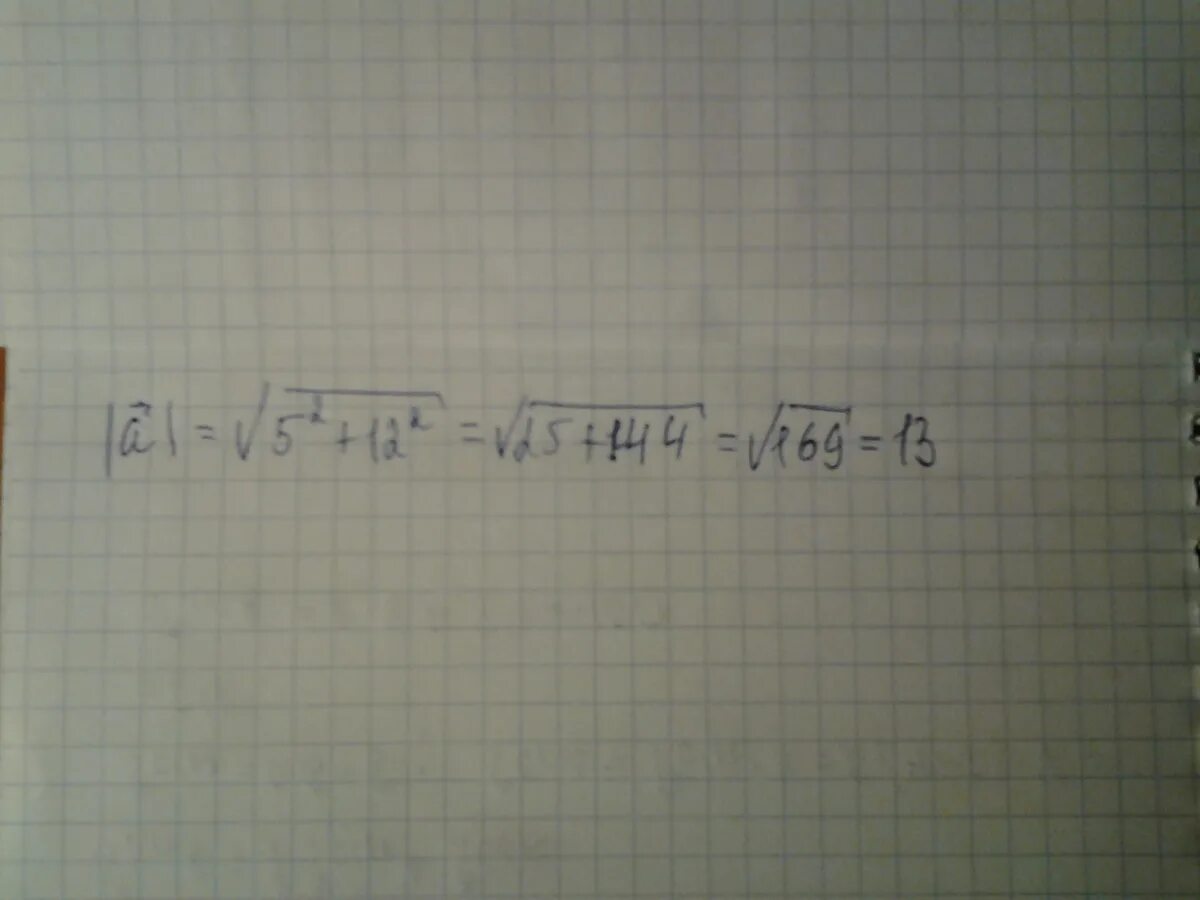 |a⃗| = √(5² + 12²) = √(25 + 144) = √169 = 13